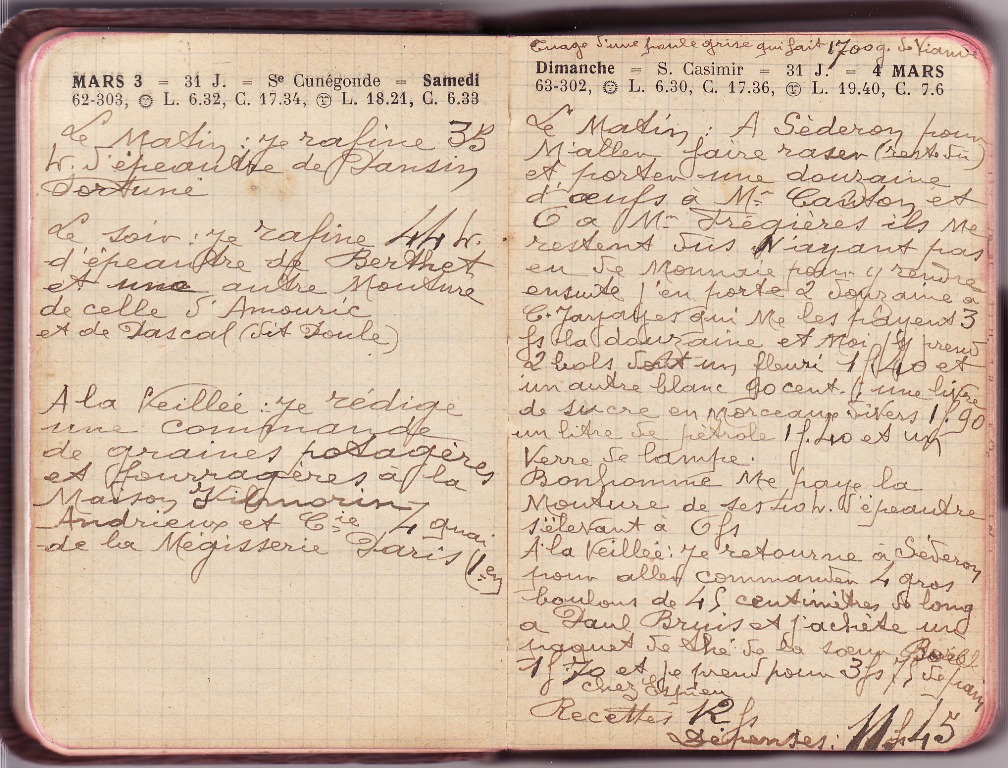 MARS 3 = 31 J. = Se Cunégonde = Samedi
62-303, L. 6.32, C. 17.34, L. 18.21, C. 6.33
Le Matin : je rafine 35
h. d'épeautre de Pansin
Fortuné
Le soir : je rafine 44 h.
d'épeautre de Berthet
et une autre Mouture
de celle d'Amouric
et de Pascal (dit Poule)
A la Veillée : je rédige
une commande
de graines potagères
et fourragères à la
Maison Vilmorin
Andrieux et Cie 4 quai
de la Mégisserie Paris (1er)
Tuage d'une poule grise qui fait 1700 g. de Viande
Dimanche = S. Casimir = 31 J. = 4 MARS
63-302, L. 6.30, C. 17.36, L. 19.40, C. 7.6
Le Matin : A Séderon pour
M'aller faire raser (reste dû)
et porter une douzaine
d'œufs à Mr Caston et
6 à Mr Frégières ils me
restent dus N'ayant pas
eu de Monnaie pour y rendre
ensuite j'en porte 2 douzaine à
C. Jarjayes qui Me les payent 3
fs la douzaine et Moi j'y prend
2 bols dont un fleuri 1f.40 et
un autre blanc 90 cent. ; une livre
de sucre en Morceaux divers 1f.90
un litre de pétrole 1f.40 et un
Verre de lampe.
Bonhomme Me paye la
Mouture de ses 100 h. d'épeautre
s'élevant à 6fs
A la Veillée : je retourne à Séderon
pour aller commander 4 gros
boulons de 45 centimètres de long
à Paul Bruis et j'achète un
paquet de thé de la sœur Borel
1f.70 et je prend pour 3fs 75 de pain
chez Espieu
Recettes 12fs
Dépenses : 11f.45